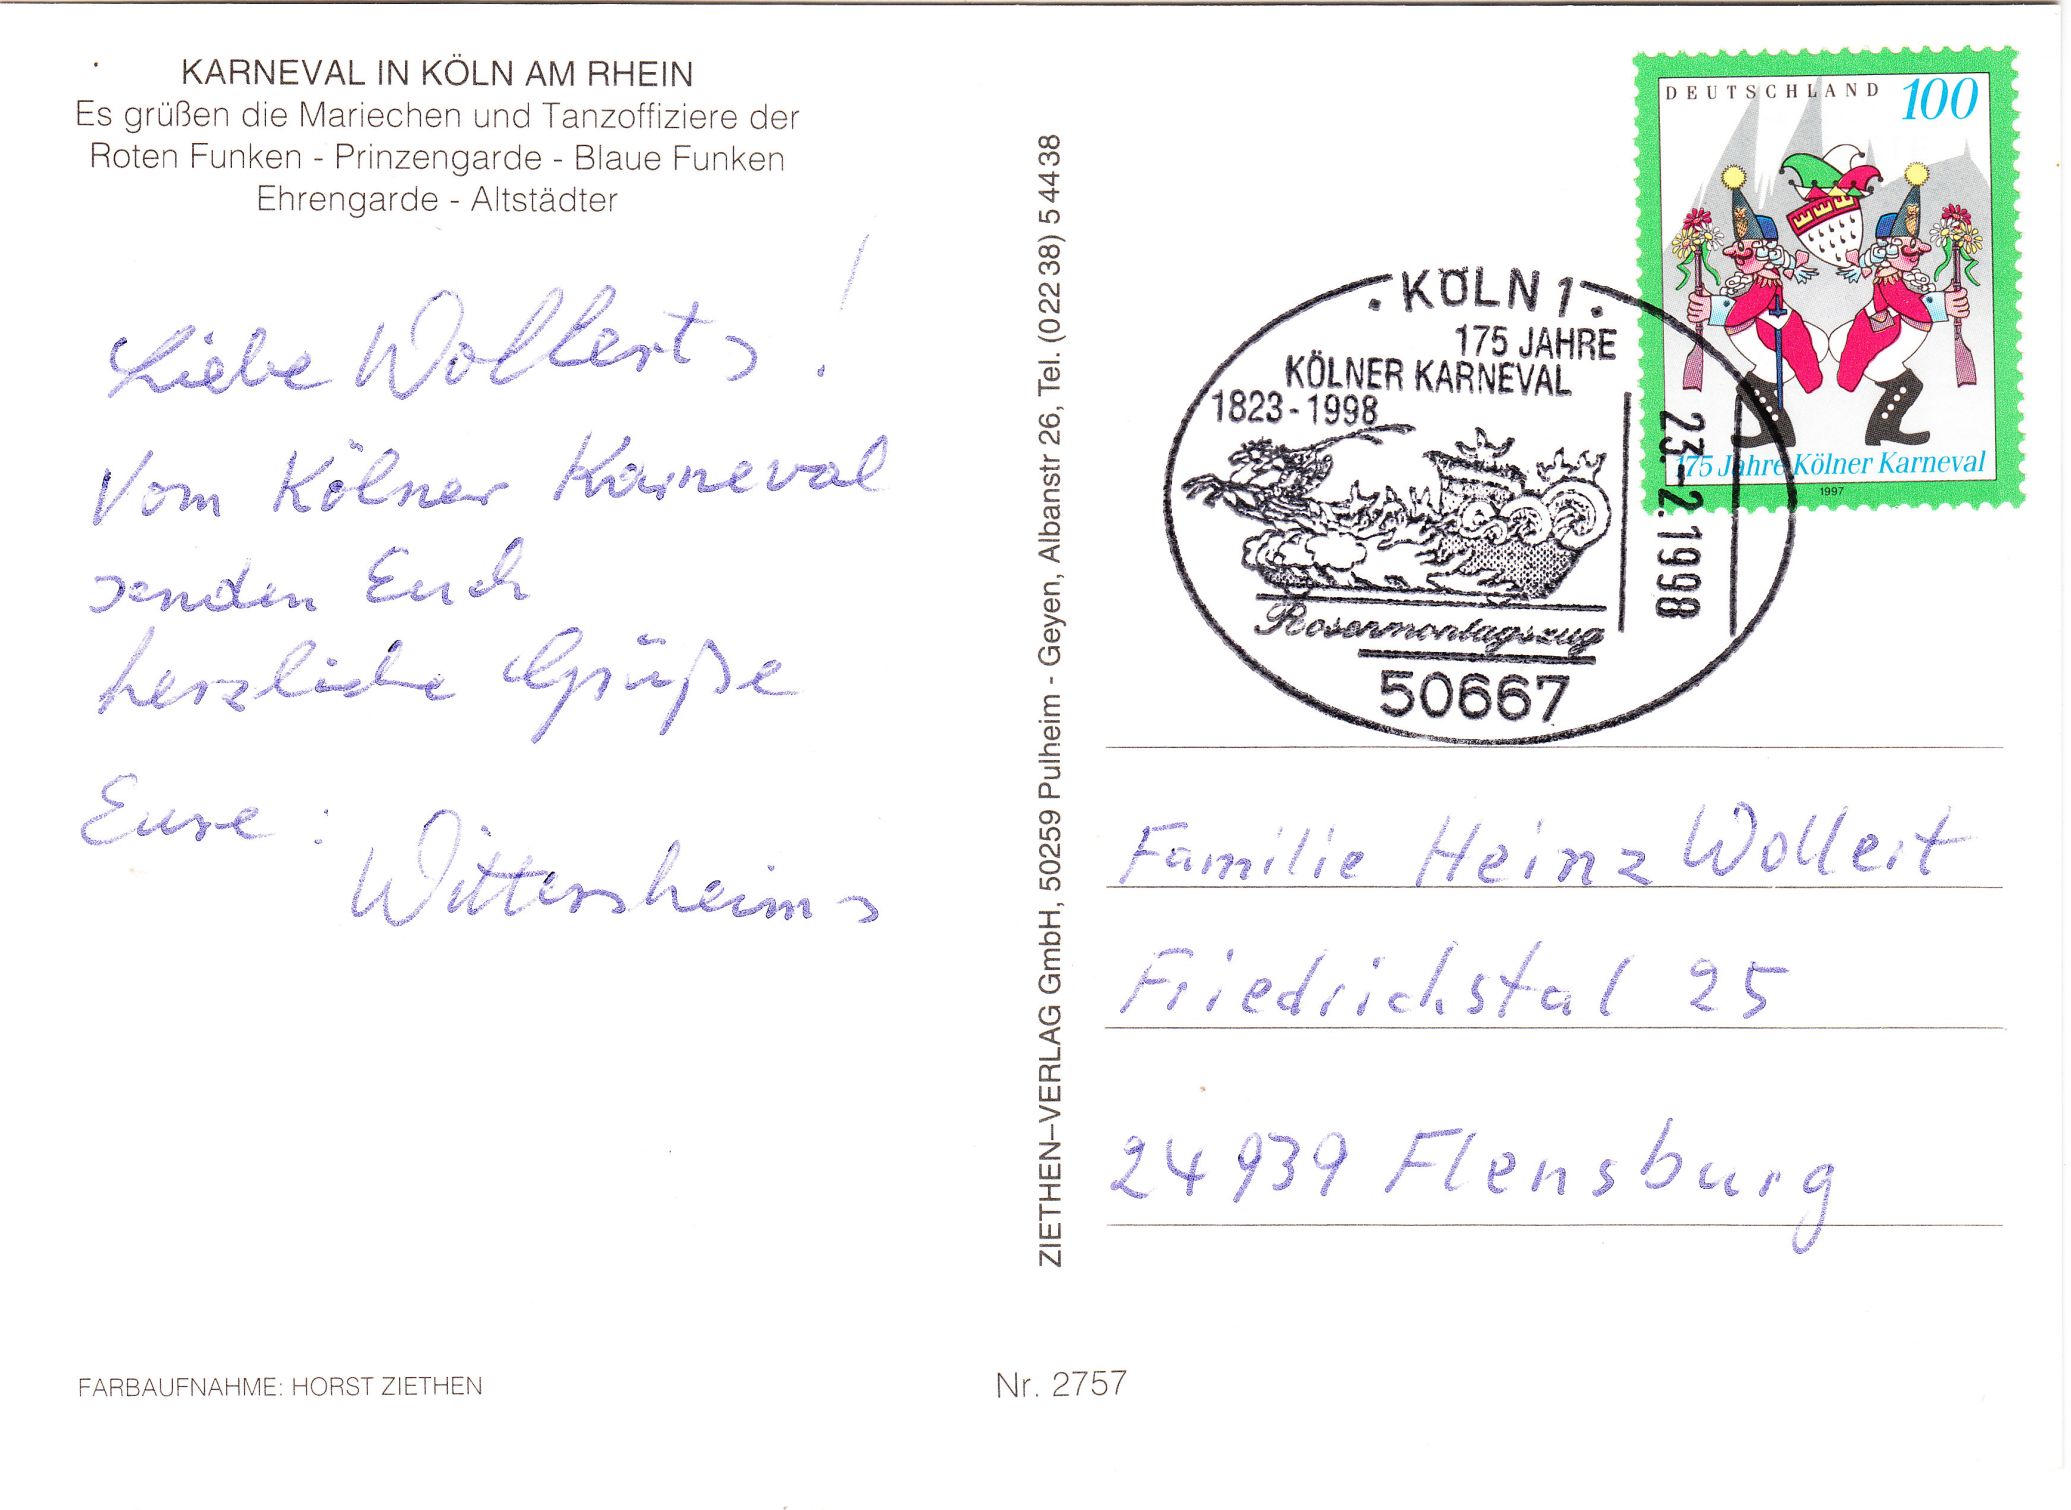 KARNEVAL IN KÖLN AM RHEIN
Es grüßen die Mariechen und Tanzoffiziere der
Roten Funken - Prinzengarde - Blaue Funken
Ehrengarde - Altstädter
Liebe Wollerts!
Vom Kölner Karneval
senden Euch
herzliche Grüße
Eure:
Wittersheims
FARBAUFNAHME: HORST ZIETHEN
Nr. 2757
ZIETHEN-VERLAG GmbH, 50259 Pulheim - Geyen, Albanstr 26, Tel. (022 38) 544 38
DEUTSCHLAND 100
175 Jahre Kölner Karneval
1997
KÖLN 1
175 JAHRE
KÖLNER KARNEVAL
1823-1998
23.-2.1998
Rosenmontagszug
50667
Familie Heinz Wollert
Friedrichstal 25
24939 Flensburg